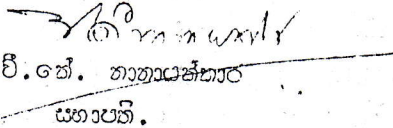 වී.කේ. නානායක්කාර
සභාපති.